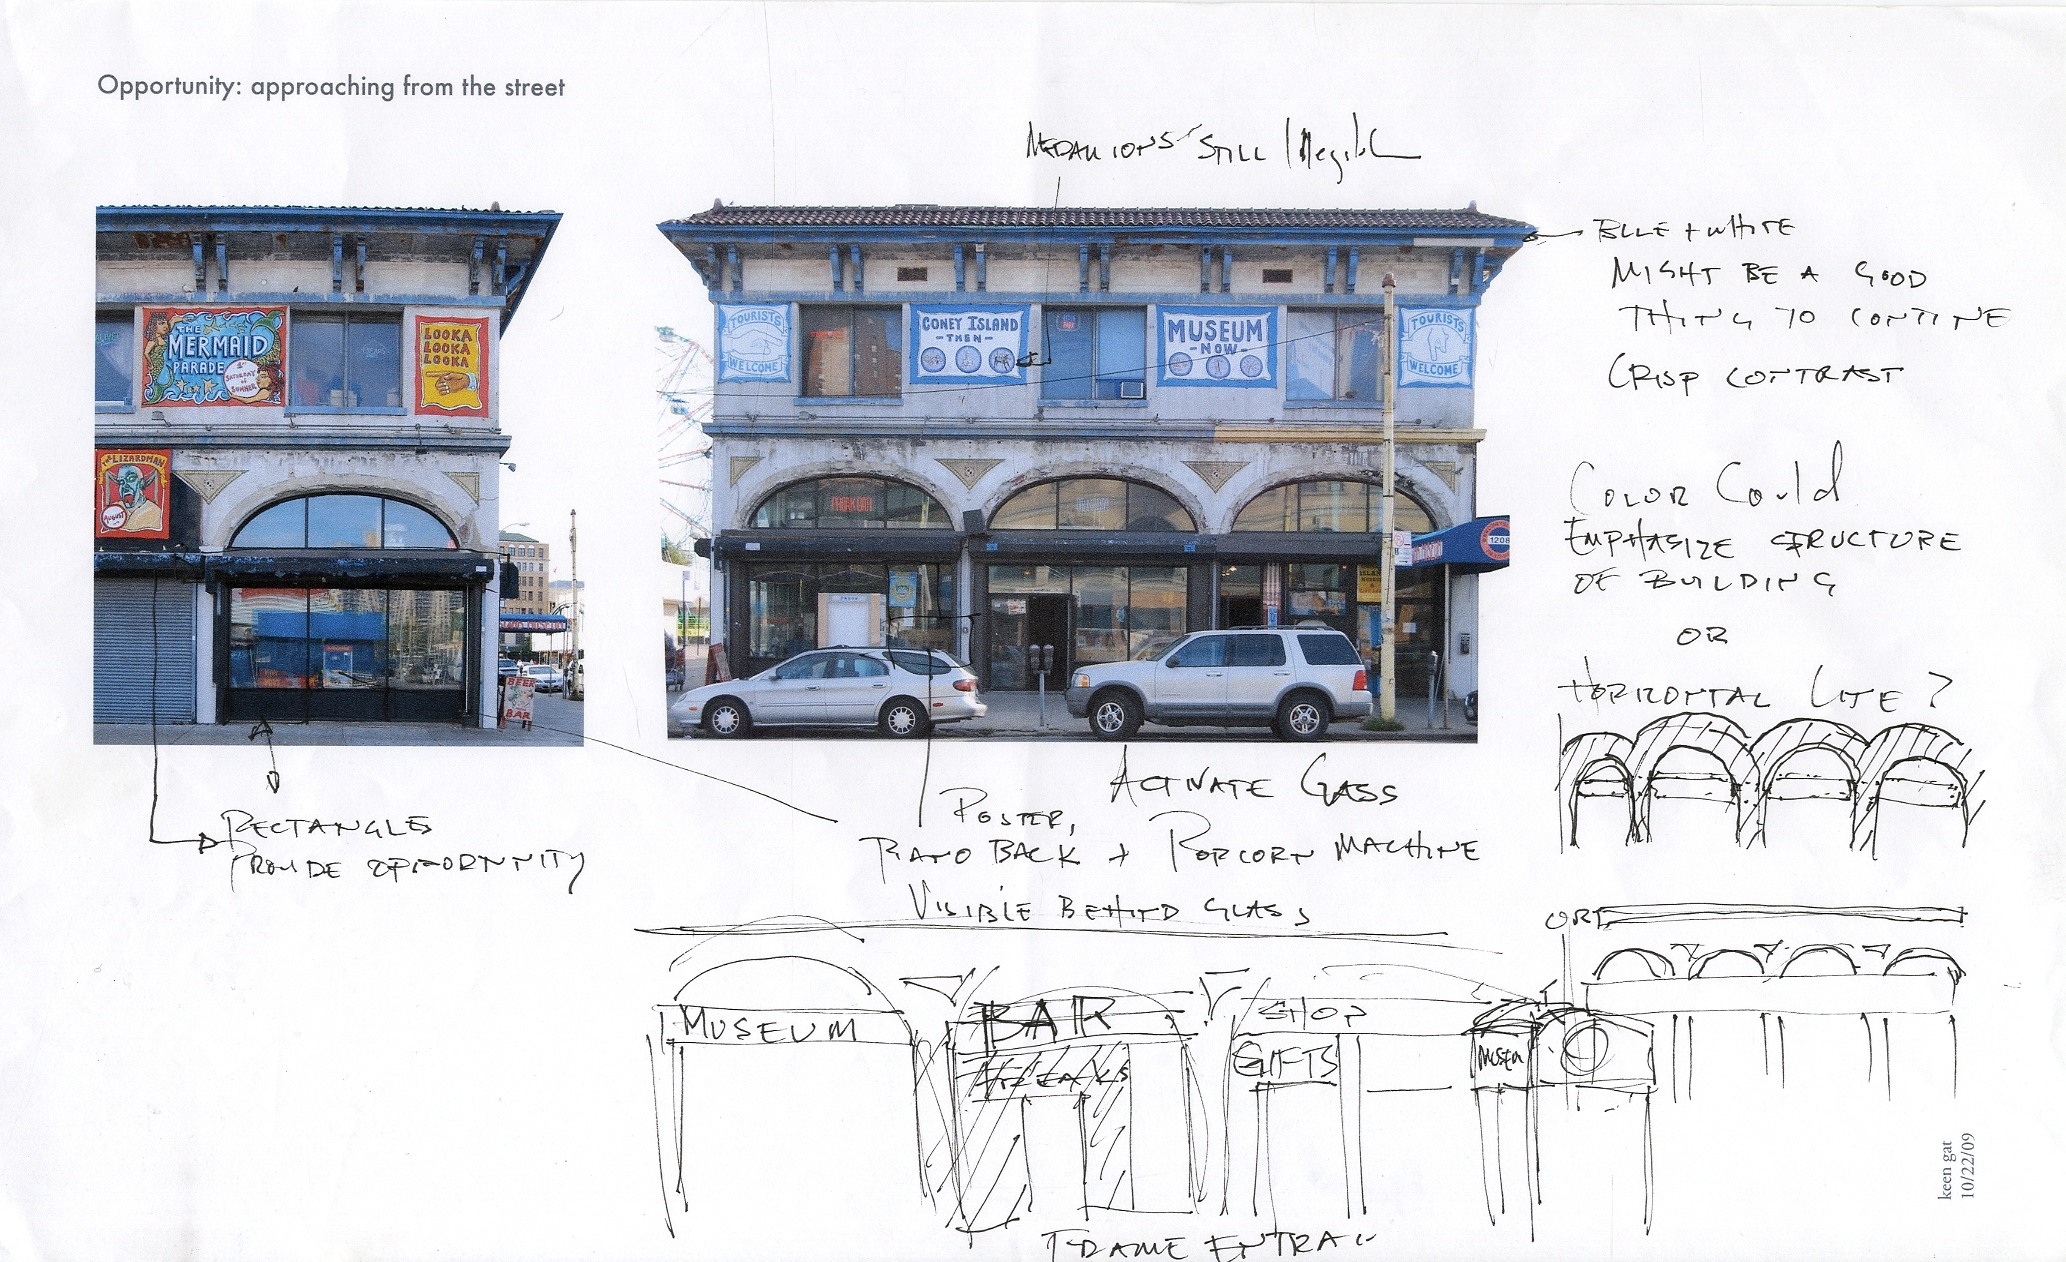 Opportunity: approaching from the street
MEDALLIONS STILL Illegible
BLUE + WHITE
MIGHT BE A GOOD
THING TO CONTINE
CRISP CONTRAST
THE
MERMAID
PARADE
1st
SATURDAY
of
SUMMER
LOOKA
LOOKA
LOOKA
THE LIZARDMAN
AUGUST
BEER
BAR
TOURISTS
WELCOME
CONEY ISLAND
-THEN-
MUSEUM
-NOW-
TOURISTS
WELCOME
1208
COLOR COULD
EMPHASIZE STRUCTURE
OF BUILDING
OR
HORIZONTAL LINE?
RECTANGLES
PROVIDE OPPORTUNITY
ACTIVATE GLASS
POSTER,
PIANO BACK + POPCORN MACHINE
VISIBLE BEHIND GLASS
OR
MUSEUM
BAR
FREAKS
SHOP
GIFTS
MUSEU
FRAME ENTRA
keen gat
10/22/09